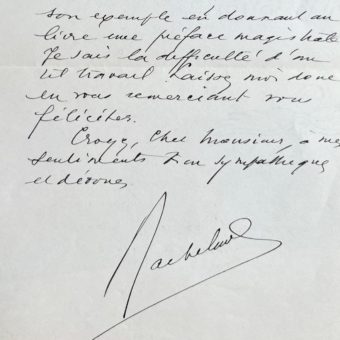 son exemple en donnant au
livre une préface magistrale
Je sais la difficulté d'un
tel travail. Laissez moi donc
en vous remerciant vous
féliciter.
Croyez, Cher Monsieur, à mes
sentiments bien sympathiques
et dévoués